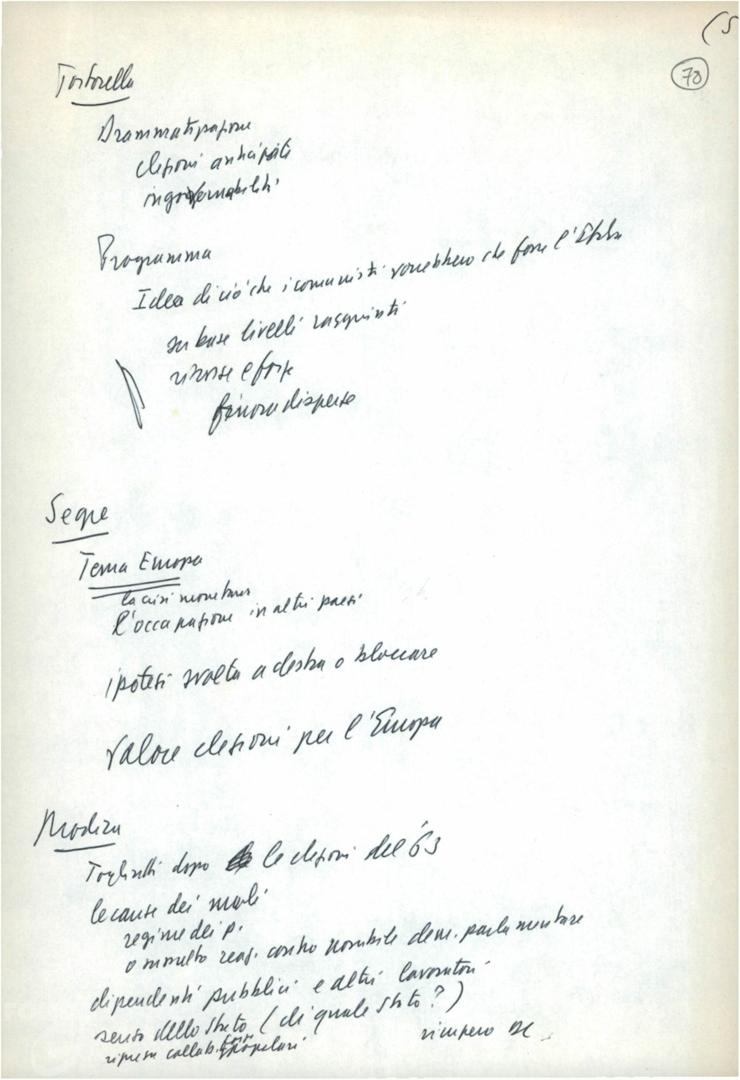 (5
70
Tortorella
Drammatizzazione
elezioni anticipate
ingovernabilità
Programma
Idea di ciò che i comunisti vorrebbero che fosse l'Italia
su base livelli raggiunti
risorse e forze
finora disperse
Segre
Tema Europa
la crisi monetaria
l'occupazione in altri paesi
ipotesi svolta a destra o bloccare
valore elezioni per l'Europa
Modica
Togliatti dopo le elezioni del '63
le cause dei mali
regime dei p.
o monito reaz. contro possibile dem. parlamentare
dipendenti pubblici e altri lavoratori
senso dello Stato (di quale Stato?)
ripresa collab. forze popolari
recupero DC